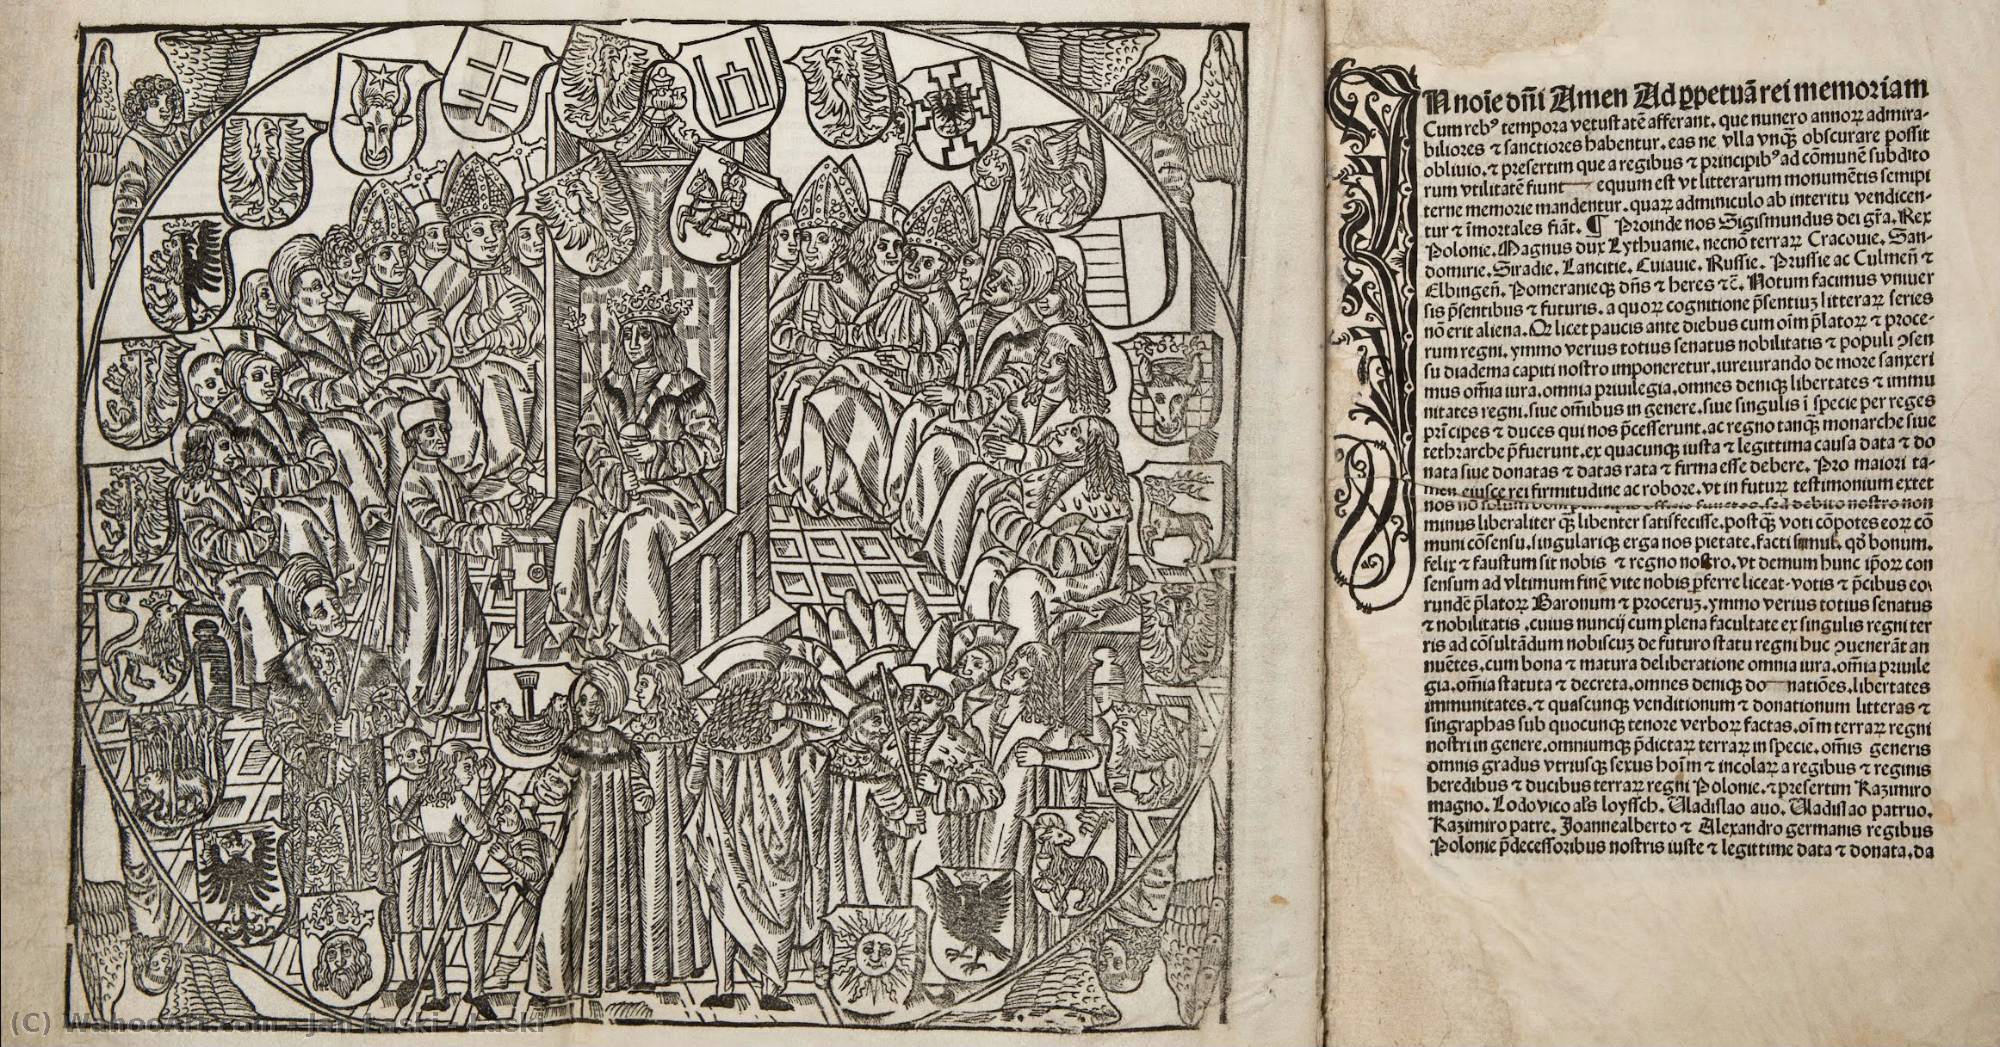 In noīe dn̄i Amen Ad ꝑpetuā rei memoriam
Cum reb⁹ tempora vetustatē afferant. que nunero annoꝝ admira-
biliores ⁊ sanctiores habentur. eas ne vlla vnqꝫ obscurare possit
obliuio. ⁊ presertim que a regibus ⁊ principib⁹ ad cōmunē subdito
rum vtilitatē fiunt equum est vt litterarum monumētis sempi
terne memorie mandentur. quaꝝ adminiculo ab interitu vendicen-
tur ⁊ īmortales fiāt. ¶ Proinde nos Sigismundus dei gr̄a. Rex
Polonie. Magnus dux Lythuanie. necnō terraꝝ Cracouie. San-
domirie. Siradie. Lancitie. Cuiauie. Russie. Prussie ac Culmeñ ⁊
Elbingeñ. Pomeranieqꝫ dn̄s ⁊ heres ⁊c̄. Notum facimus vniuer
sis p̄sentibus ⁊ futuris. a quoꝝ cognitione p̄sentiuꝫ litteraꝝ series
nō erit aliena. Qꝫ licet paucis ante diebus cum oīm p̄latoꝝ ⁊ proce-
rum regni. ymmo verius totius senatus nobilitatis ⁊ populi ꝯsen
su diadema capiti nostro imponeretur. iureiurando de more sanxeri
mus om̄ia iura. omnia priuilegia. omnes deniqꝫ libertates ⁊ immu
nitates regni. siue om̄ibus in genere. siue singulis ī specie per reges
prīcipes ⁊ duces qui nos p̄cesserunt. ac regno tanqꝫ monarche siue
tethrarche p̄fuerunt. ex quacunqꝫ iusta ⁊ legittima causa data ⁊ do
nata siue donatas ⁊ datas rata ⁊ firma esse debere. Pro maiori ta-
men eiusce rei firmitudine ac robore. vt in futuꝝ testimonium extet
nos nō solum functos. sed debito nostro non
minus liberaliter qꝫ libenter satisfecisse. postqꝫ voti cōpotes eoꝝ cō
muni cōsensu. singulariqꝫ erga nos pietate. facti sumus. qd̄ bonum.
felix ⁊ faustum sit nobis ⁊ regno nostro. vt demum hunc ip̄oꝝ con
sensum ad vltimum finē vite nobis ꝑferre liceat. votis ⁊ p̄cibus eo
rundē p̄latoꝝ Baronum ⁊ proceruꝫ. ymmo verius totius senatus
⁊ nobilitatis. cuius nuncij cum plena facultate ex singulis regni ter
ris ad cōsultādum nobiscuꝫ de futuro statu regni huc ꝯuenerāt an
nuētes. cum bona ⁊ matura deliberatione omnia iura. om̄ia priuile
gia. om̄ia statuta ⁊ decreta. omnes deniqꝫ donatiōes. libertates
immunitates. ⁊ quascunqꝫ venditionum ⁊ donationum litteras ⁊
singraphas sub quocunqꝫ tenore verboꝝ factas. oīm terraꝝ regni
nostri in genere. omniumqꝫ p̄dictaꝝ terraꝝ in specie. om̄is generis
omnis gradus vtriusqꝫ sexus hoīm ⁊ incolaꝝ a regibus ⁊ reginis
heredibus ⁊ ducibus terraꝝ regni Polonie. ⁊ presertim Kazimiro
magno. Lodouico als̄ loyssch. Vladislao auo. Vladislao patruo.
Kazimiro patre. Joannealberto ⁊ Alexandro germanis regibus
Polonie p̄decessoribus nostris iuste ⁊ legittime data ⁊ donata. da
(C) WahooArt.com - Jan Laski - Łaski